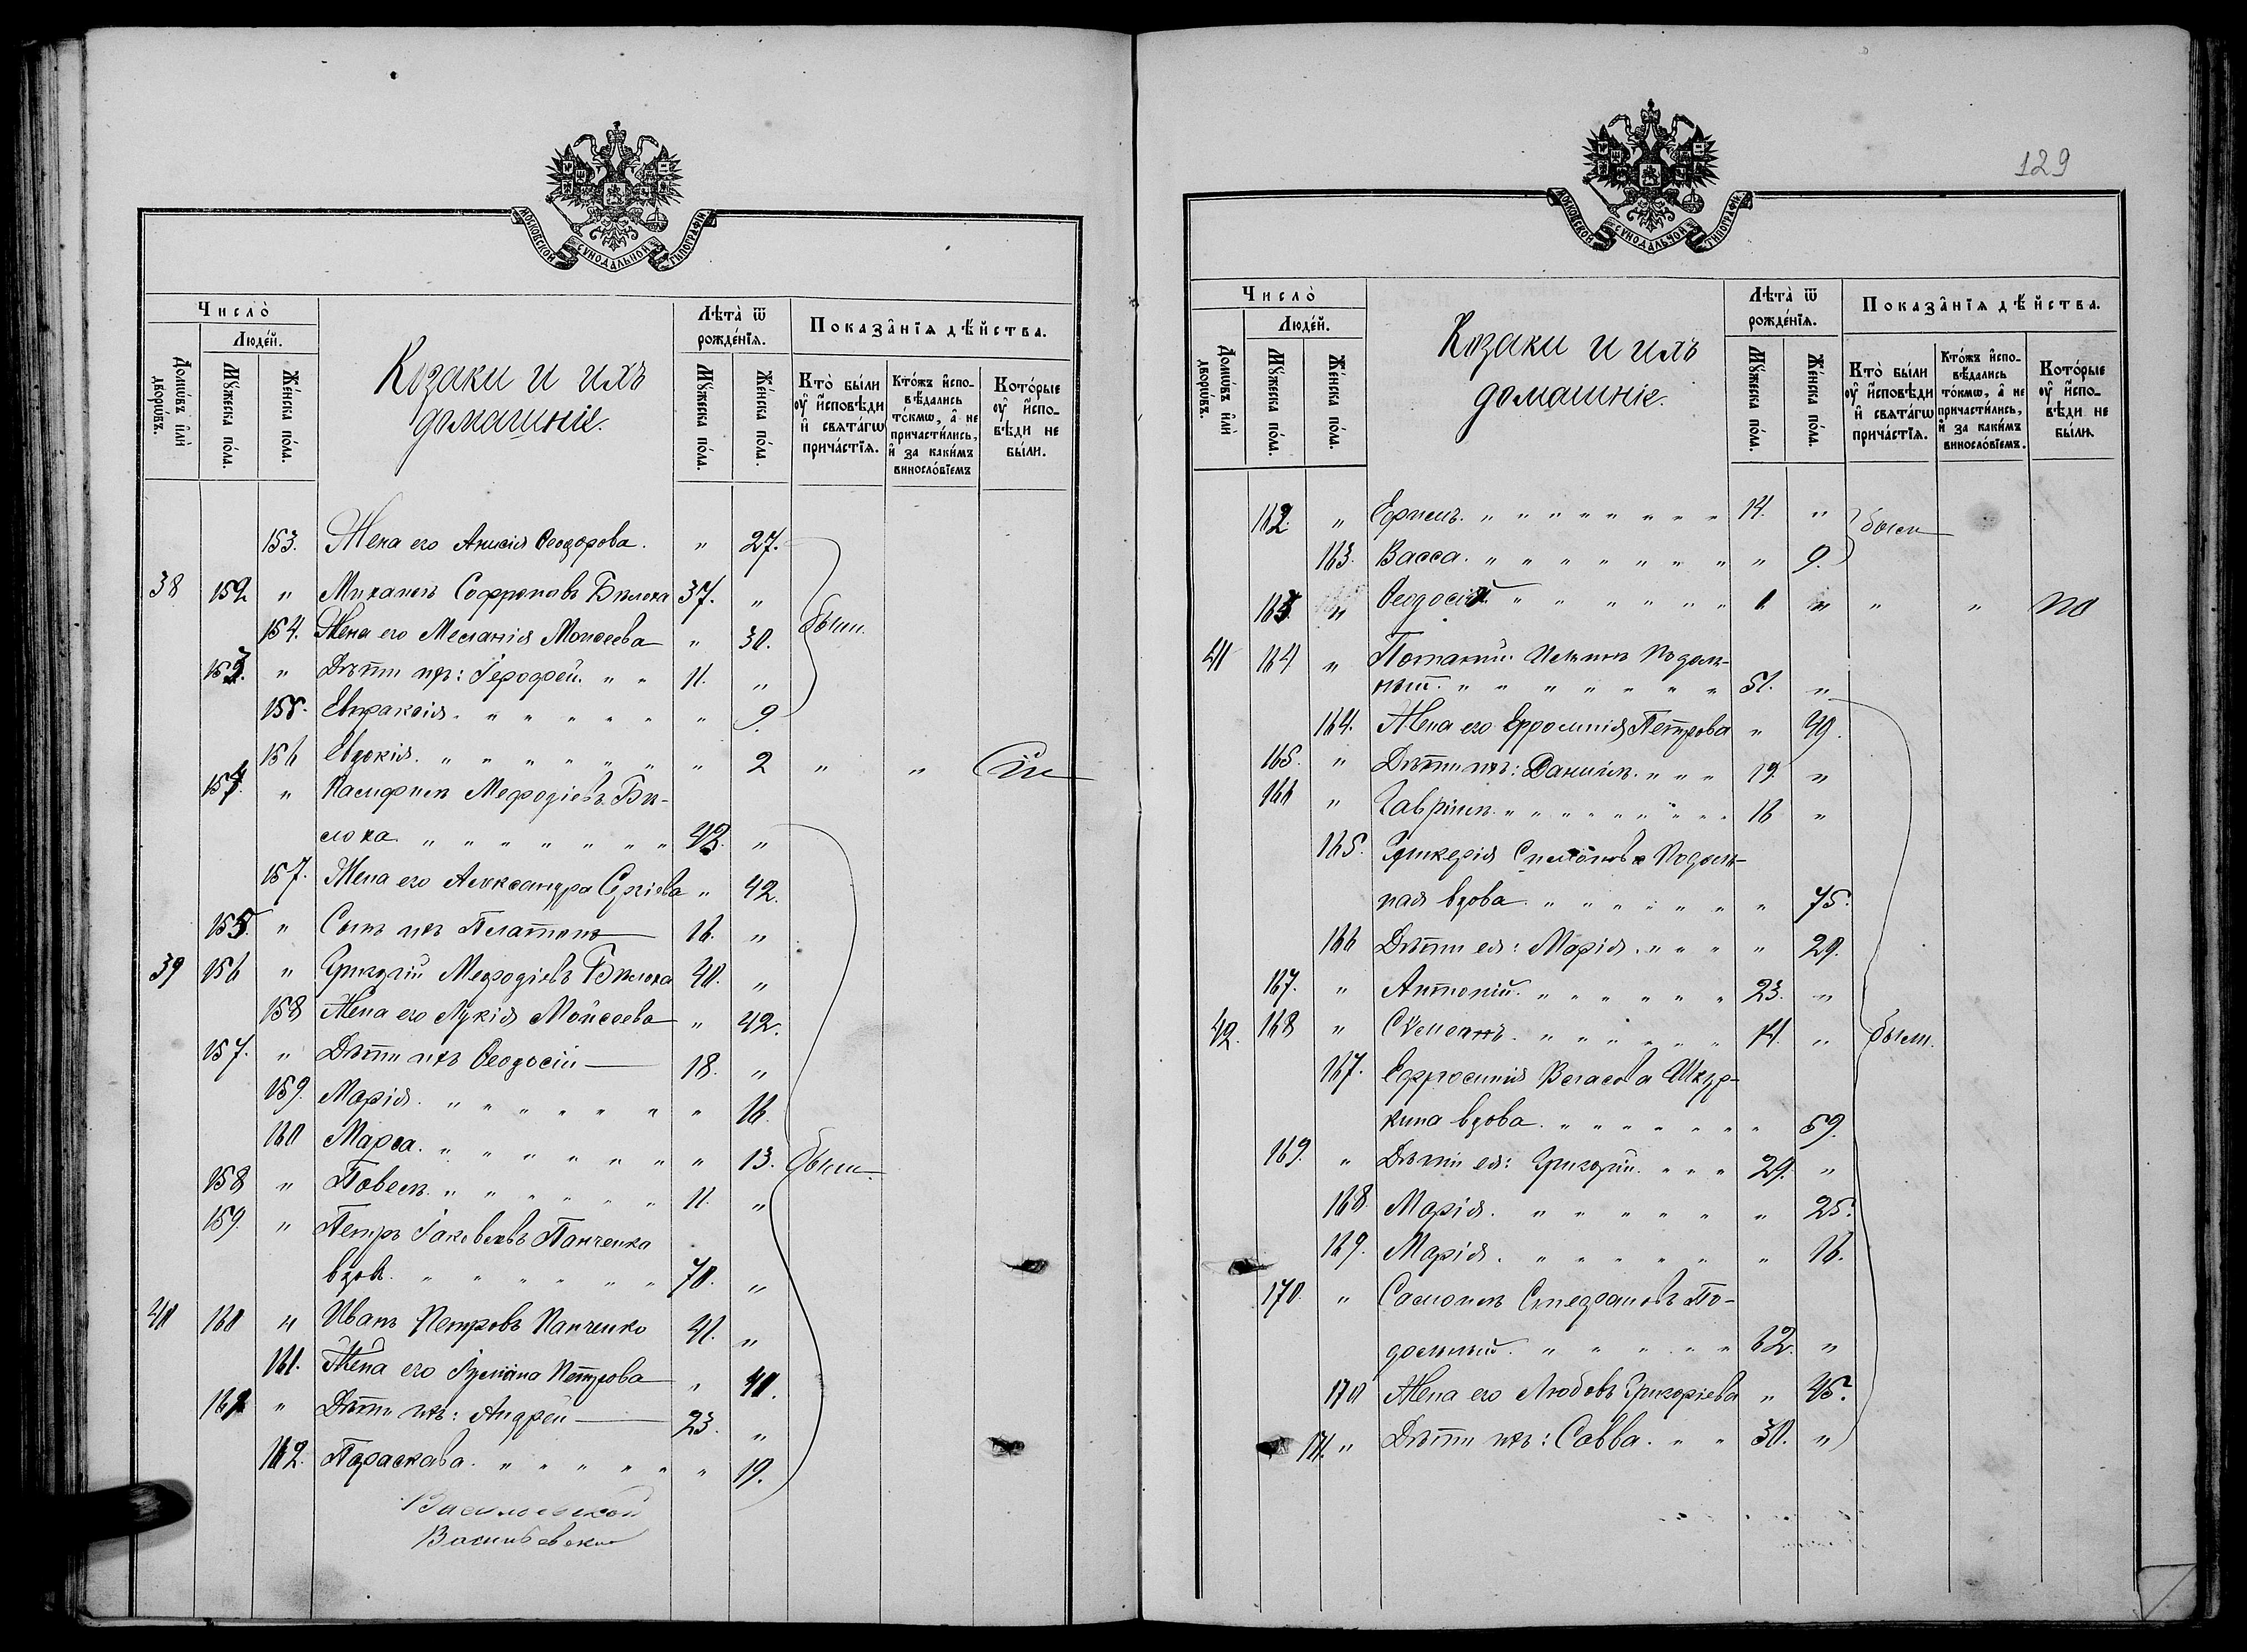 МОСКОВСКОЙ СУНОДАЛЬНОЙ ТИПОГРАФІИ
Число̀
Домѡвъ и҆лѝ дворѡвъ.
Люде́й.
Мꙋ́жеска по́ла.
Же́нска по́ла.
Козаки и ихъ
домашніе.
Лѣта̀ ѿ рожде́нїѧ.
Мꙋ́жеска по́ла.
Же́нска по́ла.
Показа̑нїѧ дѣ́йства.
Кто̀ бы́ли ᲂу҆ и҆сповѣди и҆ свѧта́гѡ прича́стїѧ.
Кто́жъ и҆спо- вѣдались то́кмѡ, а҆ не причасти́лись, и҆ за каки́мъ виносло́вїемъ
Кото́рые ᲂу҆ и҆спо- вѣди не бы́ли.
153. Жена его Анисія Ѳеодорова. " 27.
38 152 " Михаилъ Софроновъ Билока 37. "
154. Жена его Меланія Моисеева " 30. были.
153. " Дѣти ихъ: Іерофей. " " 11. "
155. Евпраксія. " " " " " " 9.
156 Евдокія. " " " " " " " 2 " "
154. " Памфилъ Меѳодіевъ Би-
лока. " " " " " " " 43. "
157. Жена его Александра Сергіева " 42.
155. " Сынъ ихъ Платонъ 16. "
39 156 " Григорій Меѳодіевъ Билока 40. "
158 Жена его Лукія Моисеева " 42.
157. " Дѣти ихъ Ѳеодосій 18. "
159. Марія. " " " " " " " 16.
160 Марѳа. " " " " " " " 13. были.
158 " Павелъ. " " " " " " 11. "
159. " Петръ Іаковлевъ Панченко
вдов. " " " " " " " 70. "
40 160 " Иванъ Петровъ Панченко 41. "
161. Жена его Іуліана Петрова " 40.
161 " Дѣти ихъ: Андрей 23. "
162. Параскева. " " " " " " 19.
129
МОСКОВСКОЙ СУНОДАЛЬНОЙ ТИПОГРАФІИ
Число̀
Домѡвъ и҆лѝ дворѡвъ.
Люде́й.
Мꙋ́жеска по́ла.
Же́нска по́ла.
Козаки и ихъ
домашніе.
Лѣта̀ ѿ рожде́нїѧ.
Мꙋ́жеска по́ла.
Же́нска по́ла.
Показа̑нїѧ дѣ́йства.
Кто̀ бы́ли ᲂу҆ и҆сповѣди и҆ свѧта́гѡ прича́стїѧ.
Кто́жъ и҆спо- вѣдались то́кмѡ, а҆ не причасти́лись, и҆ за каки́мъ виносло́вїемъ.
Кото́рые ᲂу҆ и҆спо- вѣди не бы́ли.
162. " Ефимъ. " " " " " " " " 14. " были
163. Васса. " " " " " " " " 9.
163. " Ѳеодосій " " " " " " 1. " " "
41 164 " Потапій Подоль-
ный. " " " " " " " 51. "
164. Жена его Ефросинія Петрова " 49.
165. " Дѣти ихъ: Даніилъ. " " " 19. "
166 " Гавріилъ. " " " " " " " " 16 "
165. Гликерія Симеонова Подоль-
ная вдова. " " " " " " " 75.
166 Дѣти ея: Марія. " " " " 29.
167. " Антоній. " " " " " " 23. "
42. 168 " Стефанъ. " " " " " " 14. " были.
167. Ефросинія Власова Шкур-
кина вдова. " " " " " " " 59.
169. " Дѣти ея: Григорій. " " " 29. "
168. Марія. " " " " " " 25.
169. Марія. " " " " " " 16.
170. " Самоилъ Стефановъ По-
дольный. " " " " " 62. "
170 Жена его Любовь Григоріева " 45.
171. " Дѣти ихъ: Савва. " " 30. "